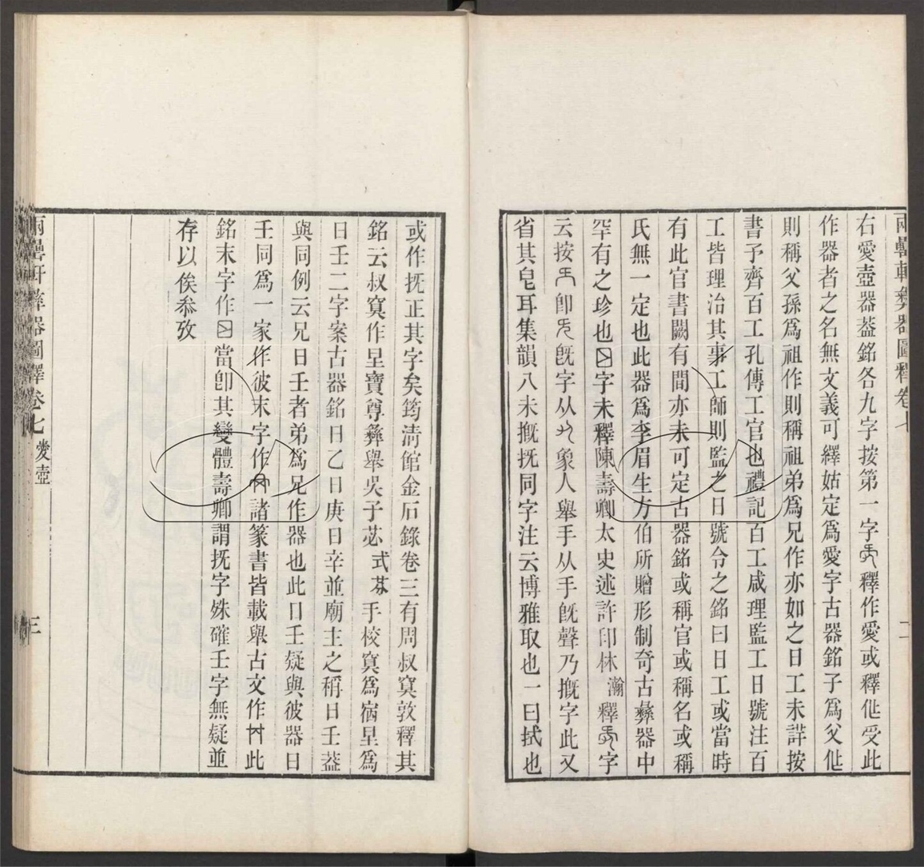 兩罍軒彝器圖釋卷七
二
右愛壺器葢銘各九字按第一字釋作愛或釋作受此
作器者之名無文義可繹姑定爲愛字古器銘子爲父作
則稱父孫爲祖作則稱祖弟爲兄作亦如之日工未詳按
書予齊百工孔傳工官也禮記百工咸理監工日號注百
工皆理治其事工師則監之日號令之銘曰日工或當時
有此官書闕有間亦未可定古器銘或稱官或稱名或稱
氏無一定也此器爲李眉生方伯所贈形制奇古彝器中
罕有之珍也字未釋陳壽卿太史述許印林瀚釋字
云按卽旡旣字从象人舉手从手旣聲乃摡字此又
省其皂耳集韻八未摡抚同字注云博雅取也一曰拭也
或作抚正其字矣筠淸館金石錄卷三有周叔㝠敦釋其
銘云叔㝠作㫗寶尊彝舉吳子苾式芬手校㝠爲宿㫗爲
日壬二字案古器銘日乙日庚日辛並廟主之稱日壬葢
與同例云兄日壬者弟爲兄作器也此日壬疑與彼器日
壬同爲一家作彼末字作諸篆書皆載與古文作此
銘末字作當卽其變體壽卿謂抚字姝確壬字無疑並
存以俟叅攷
兩罍軒彝器圖釋卷七 愛壺
三